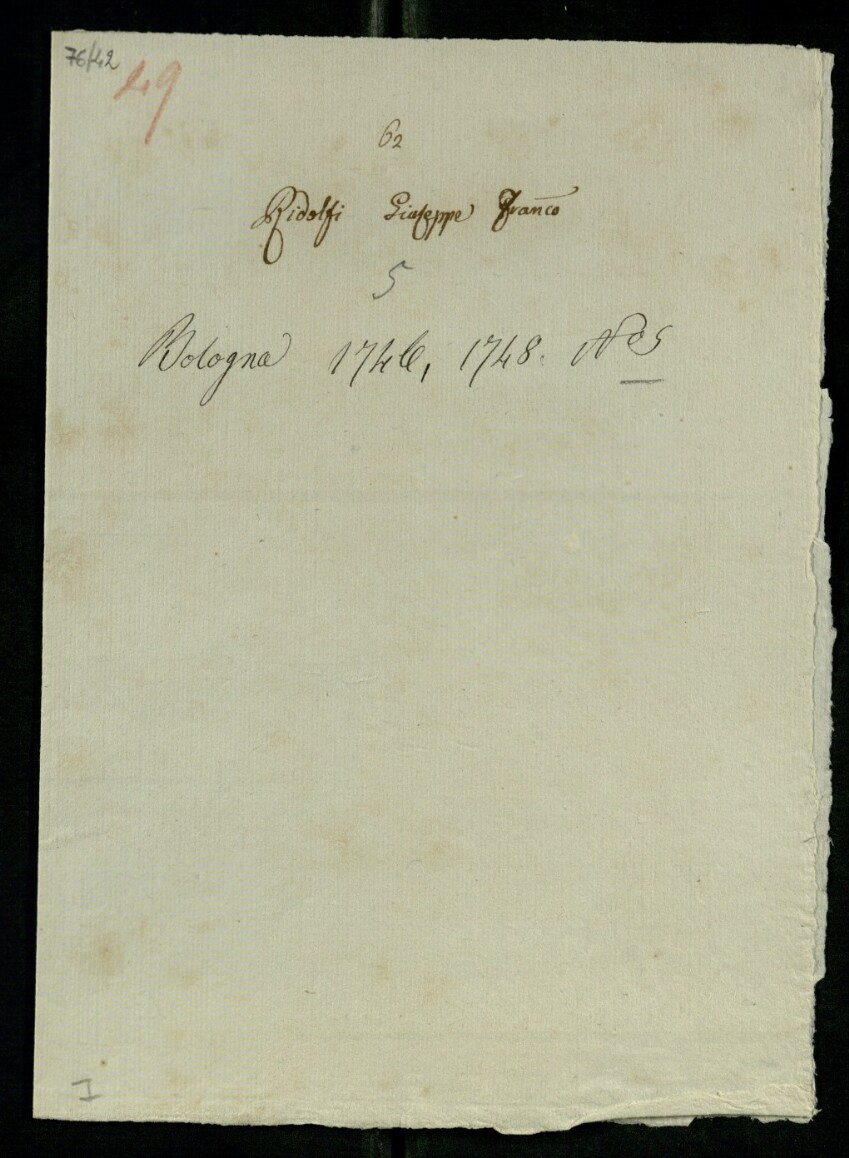 76/42
49
62
Ridolfi Giuseppe Franco
5
Bologna 1746, 1748. No 5
I